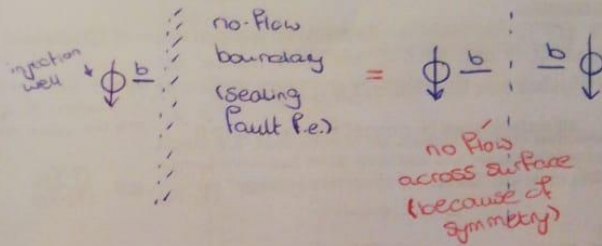 injection
well
b
no-flow
boundary
(sealing
fault f.e.)
=
b
b
no flow
across surface
(because of
symmetry)